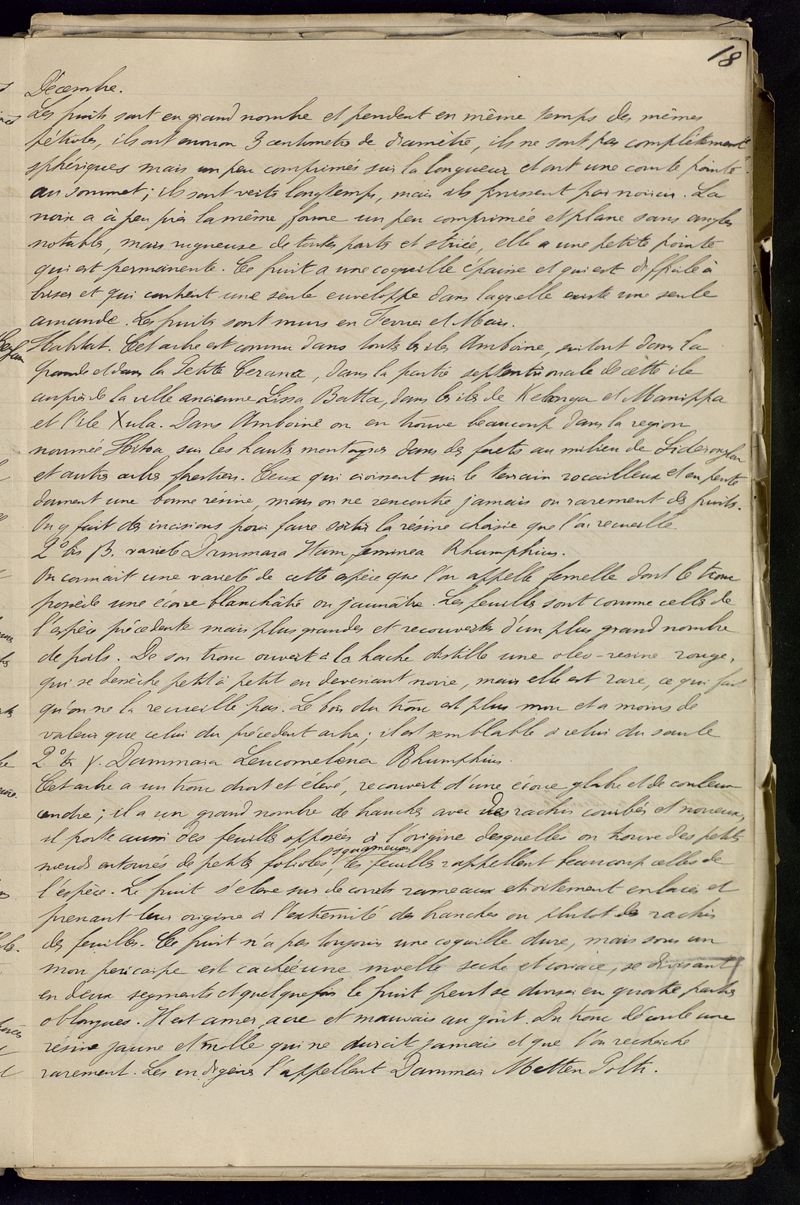 18
Décembre.
Les fruits sont en grand nombre et pendent en même temps des mêmes
pétioles, ils ont environ 3 centimètres de diamètre, ils ne sont pas complètement
sphériques mais un peu comprimés sur la longueur et ont une courte pointe
au sommet; ils sont verts longtemps, mais ils finissent par noircir. La
noix a à peu près la même forme un peu comprimée et plane sans angles
notables, mais rugueuse de toutes parts et striée, elle a une petite pointe
qui est permanente. Ce fruit a une coquille épaisse et qui est difficile à
briser et qui contient une seule enveloppe dans laquelle existe une seule
amande. Les fruits sont murs en Fevrier et Mars.
Habitat. Cet arbre est connu dans toutes les iles Amboine, surtout dans la
grande et dans la Petite Cerama, dans la partie septentrionale de cette ile
auprès de la ville ancienne Lissa Batta, dans les iles de Kelanga et Manippa
et l'ile Xula. Dans Amboine on en trouve beaucoup dans la region
nommée Hitoa, sur les hautes montagnes dans des forets au milieu de
et autres arbres forestiers. Ceux qui croissent sur le terrain rocailleux et en pente
donnent une bonne résine, mais on ne rencontre jamais ou rarement des fruits.
On y fait des incisions pour faire sortir la résine choisie que l'on recueille
2° bis β. varieté Dammara Ham feminea Rhumphius.
On connait une varieté de cette espèce que l'on appelle femelle dont le tronc
possède une écorce blanchâtre ou jaunâtre. Les feuilles sont comme celles de
l'espèce précédente mais plus grandes et recouvertes d'un plus grand nombre
de poils. De son tronc ouvert à la hache distille une oleo-resine rouge,
qui se dessèche petit à petit en devenant noire, mais elle est rare, ce qui fait
qu'on ne la recueille pas. Le bois du tronc est plus mou et a moins de
valeur que celui du précedent arbre; il est semblable à celui du saule
2° bis γ. Dammara Leucomelena Rhumphius.
Cet arbre a un tronc droit et élevé, recouvert d'une écorce glabre et de couleur
cendre; il a un grand nombre de branches avec des rachis courbés et noueux,
il porte aussi des feuilles opposées à l'origine desquelles on trouve des petits
nœuds entourés de petites folioles squameuses, les feuilles rappellent beaucoup celles de
l'espèce. Le fruit s'élève sur de courts rameaux etroitement enlacés et
prenant leur origine à l'extremité des branches ou plutot des rachis
des feuilles. Ce fruit n'a pas toujours une coquille dure, mais sous un
mou pericarpe est cachée une moelle seche et coriace, se divisant
en deux segments et quelquefois le fruit peut se diviser en quatre parties
oblongues. Il est amer, acre et mauvais au goût. Du tronc découle une
résine jaune et molle qui ne durcit jamais et que l'on recherche
rarement. Les indigènes l'appellent Dammar Metten Polti.